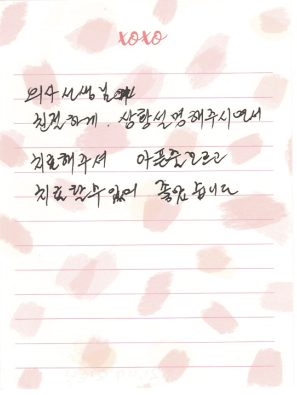 xoxo
의사선생님께서
친절하게. 상황설명해주시면서
치료해주셔 아픈줄모르고
치료할수있어 좋았습니다